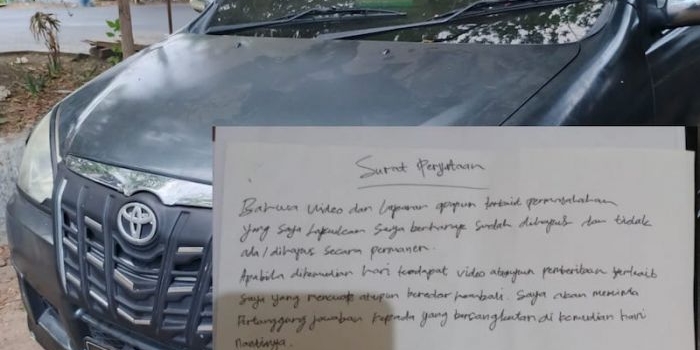 Surat Pernyataan
Bahwa Video dan Laporan apapun terkait permasalahan
yang saya lakukan saya berharap sudah dihapus dan tidak
ada / dihapus secara permanen.
Apabila dikemudian hari terdapat video ataupun pemberitaan terkait
Saya yang mencuat atupun beredar kembali. Saya akan meminta
Pertanggung jawaban kepada yang bersangkutan di kemudian hari
nantinya.